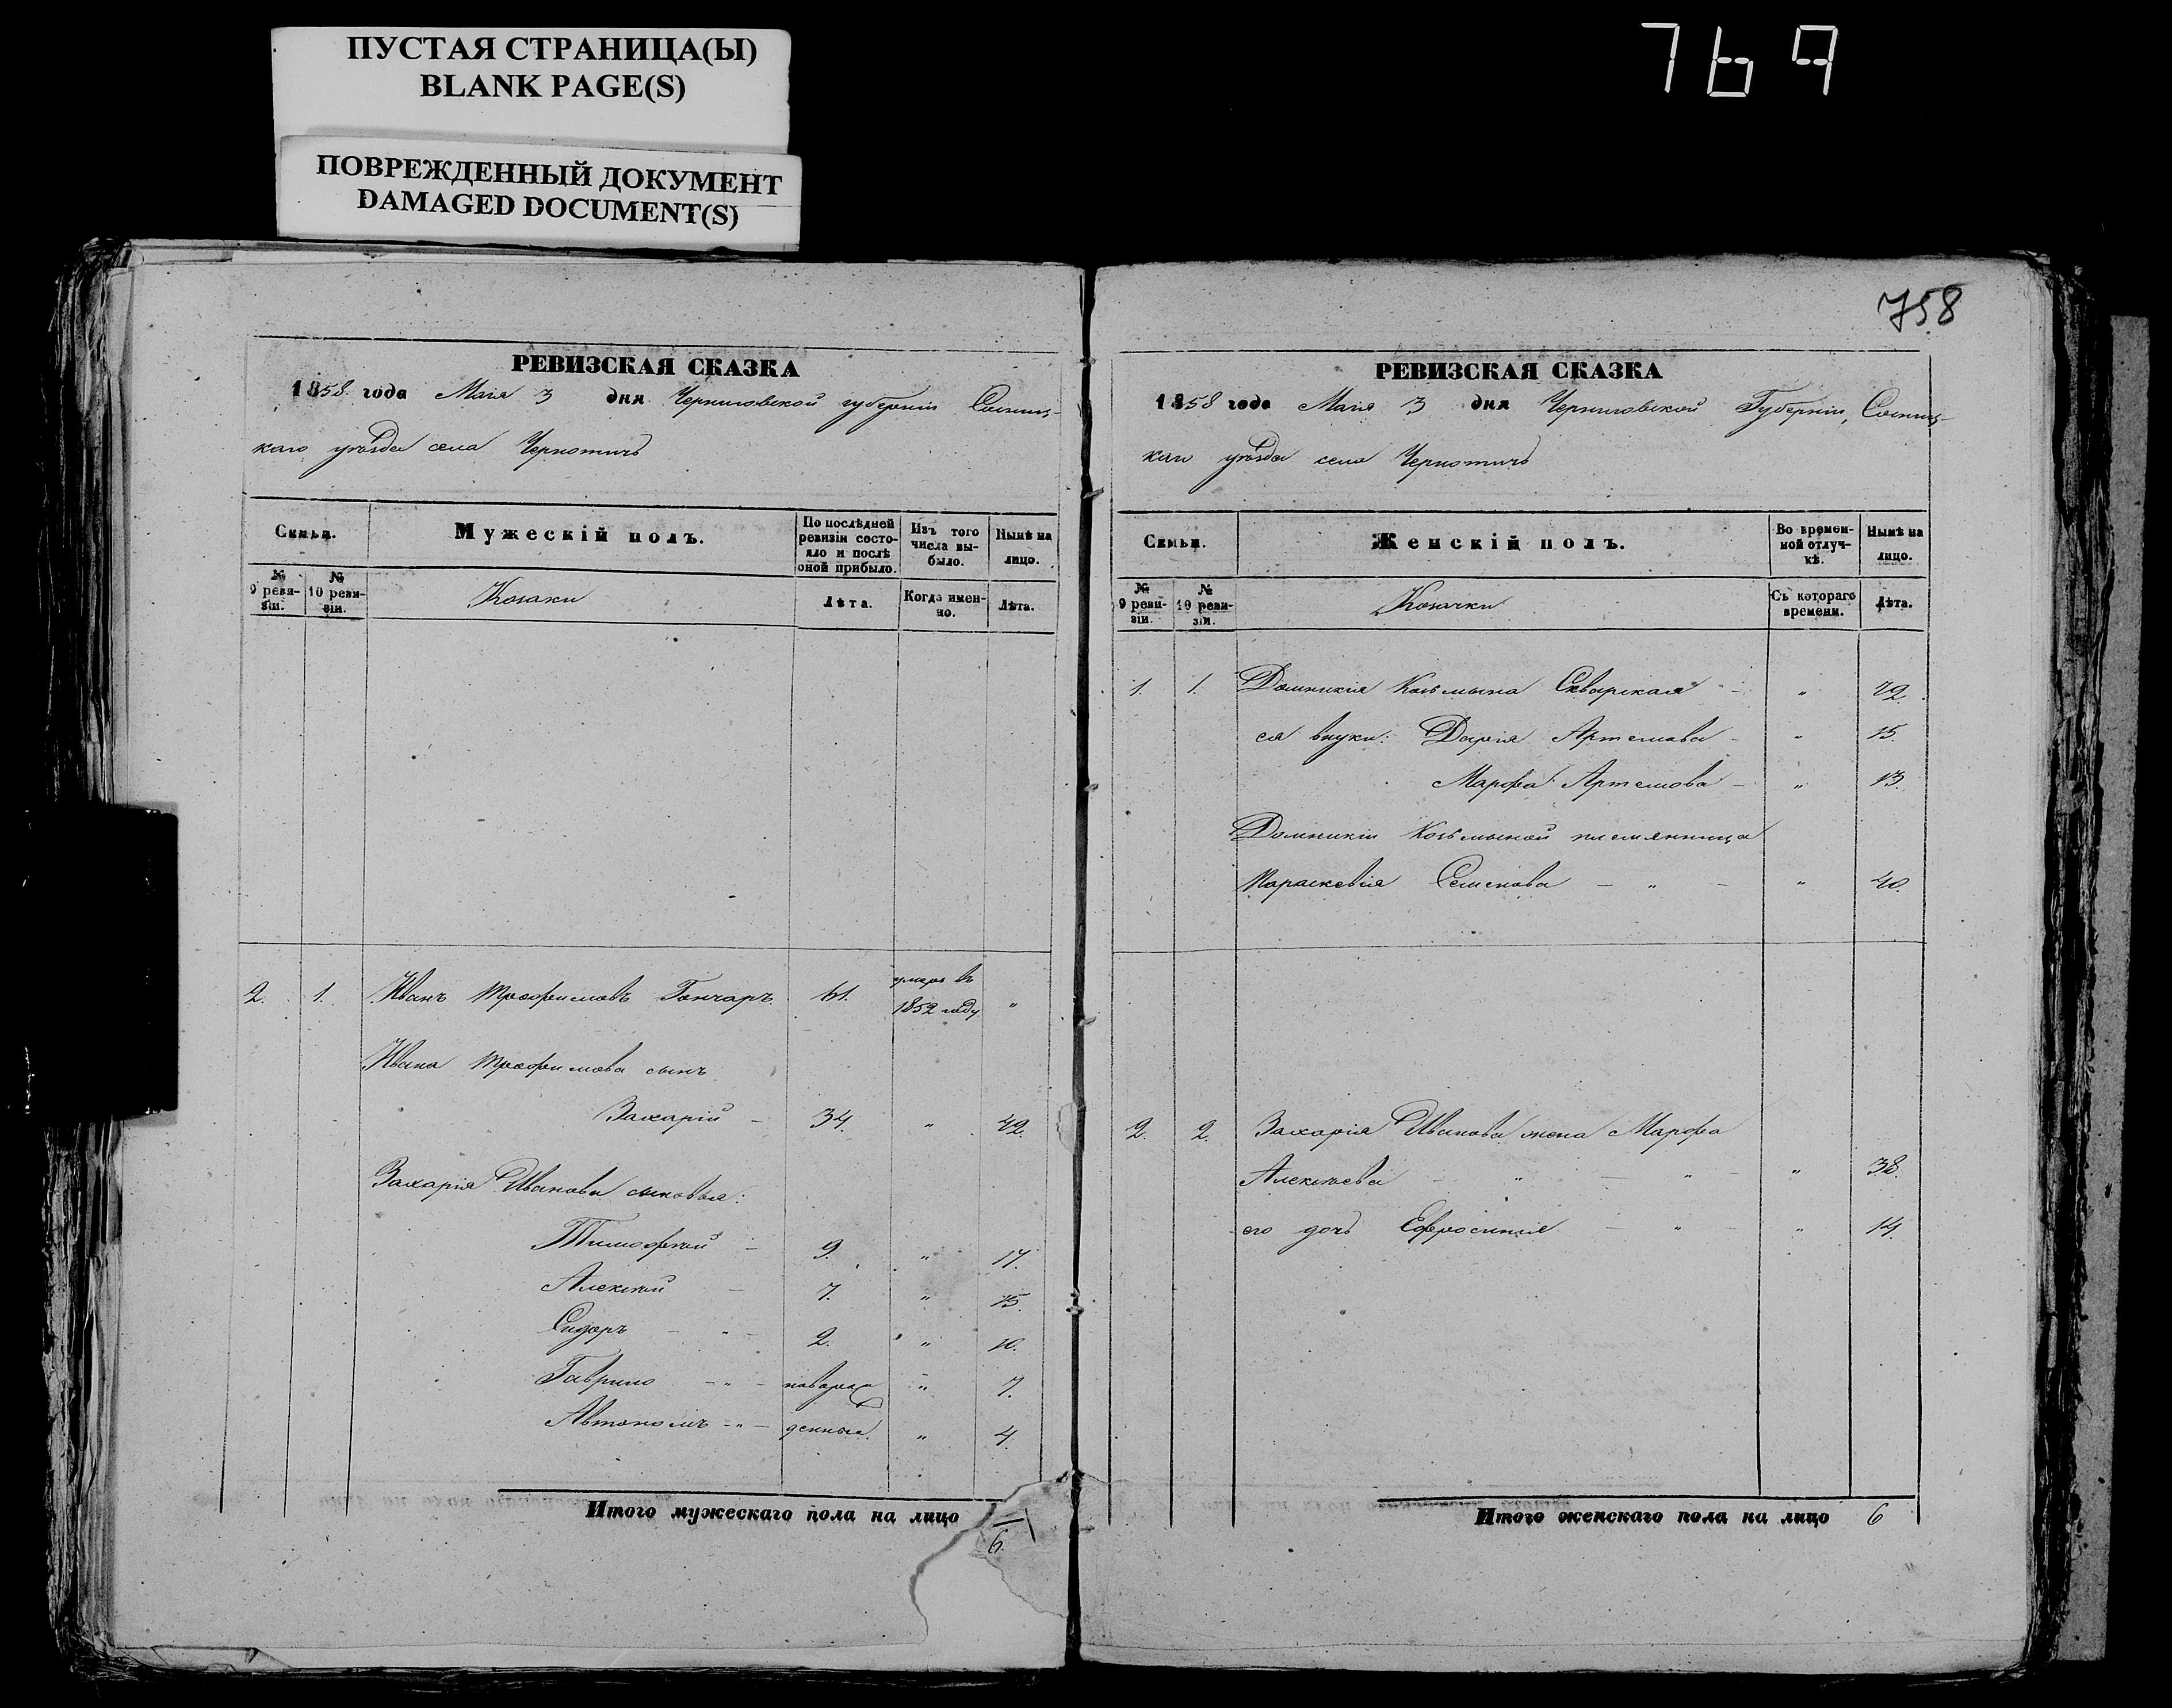 ПУСТАЯ СТРАНИЦА(Ы)
BLANK PAGE(S)
ПОВРЕЖДЕННЫЙ ДОКУМЕНТ
DAMAGED DOCUMENT(S)
769
758
РЕВИЗСКАЯ СКАЗКА
1858 года Мая 3 дня Черниговской губернiи Сосниц-
каго уѣзда села Чернотичь
Семьи.
Мужескiй полъ.
По послѣдней ревизiи состо-
яло и послѣ
оной прибыло.
Изъ того
числа вы-
было.
Нынѣ на
лицо.
№
9 реви-
зiи.
№
10 реви-
зiи.
Козаки
Лѣта.
Когда имен-
но.
Лѣта.
2. 1. Иванъ Трофимовъ Гончаръ. 61. умеръ въ
1852 году "
Ивана Трофимова сынъ
Захарiй - 34. " 42.
Захарiя Иванова сыновья:
Тимофей - 9. " 17.
Алексѣй - 7. " 15.
Сидоръ - " - 2. " 10.
Гаврило - " - новорож " 7.
Автономъ - " - денные. " 4.
Итого мужескаго пола на лицо 6.
РЕВИЗСКАЯ СКАЗКА
1858 года Мая 3 дня Черниговской Губернiи, Сосниц-
каго уѣзда села Чернотичь
Семьи.
Женскiй полъ.
Во времен-
ной отлуч-
кѣ.
Нынѣ на
лицо.
№
9 реви-
зiи.
№
10 реви-
зiи.
Козачки
Съ котораго
времени.
Лѣта.
1. 1. Домникiя Козьмина Скварская - " 72.
ея внуки: Дарiя Артемова - " 15.
Марфа Артемова - " 13.
Домникiи Козьминой племянница
Параскевiя Семенова - " - " 40.
2. 2. Захарiя Иванова жена Марфа
Алексѣева - " - " - " 38.
его дочь Ефросинiя - " - " 14.
Итого женскаго пола на лицо 6